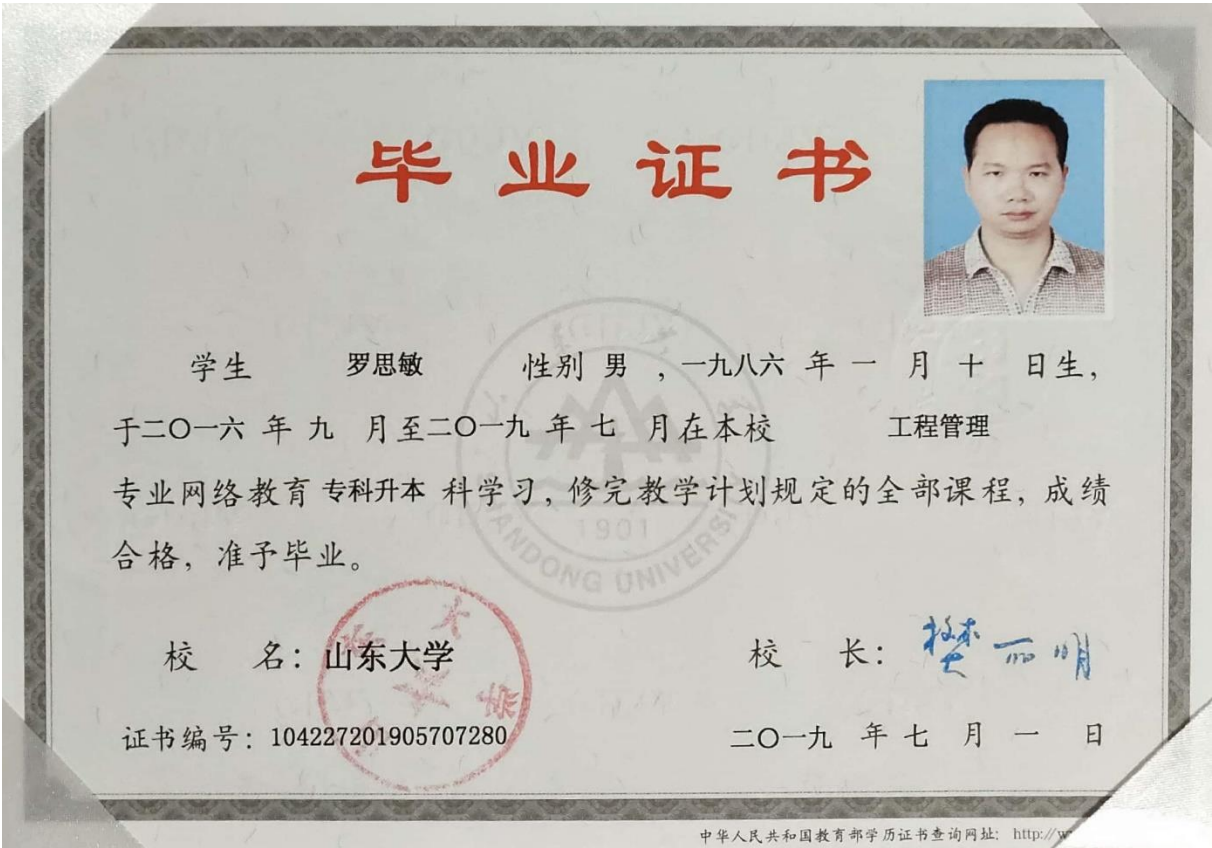 毕业证书
学生 罗思敏 性别 男 ，一九八六 年 一 月 十 日生，
于二〇一六 年 九 月至二〇一九 年 七 月在本校 工程管理
专业网络教育 专科升本 科学习，修完教学计划规定的全部课程，成绩
合格，准予毕业。
1901
SHANDONG UNIVERSITY
校 名：山东大学
校 长：樊丽明
证书编号：104227201905707280
二〇一九 年 七 月 一 日
中华人民共和国教育部学历证书查询网址： http://w